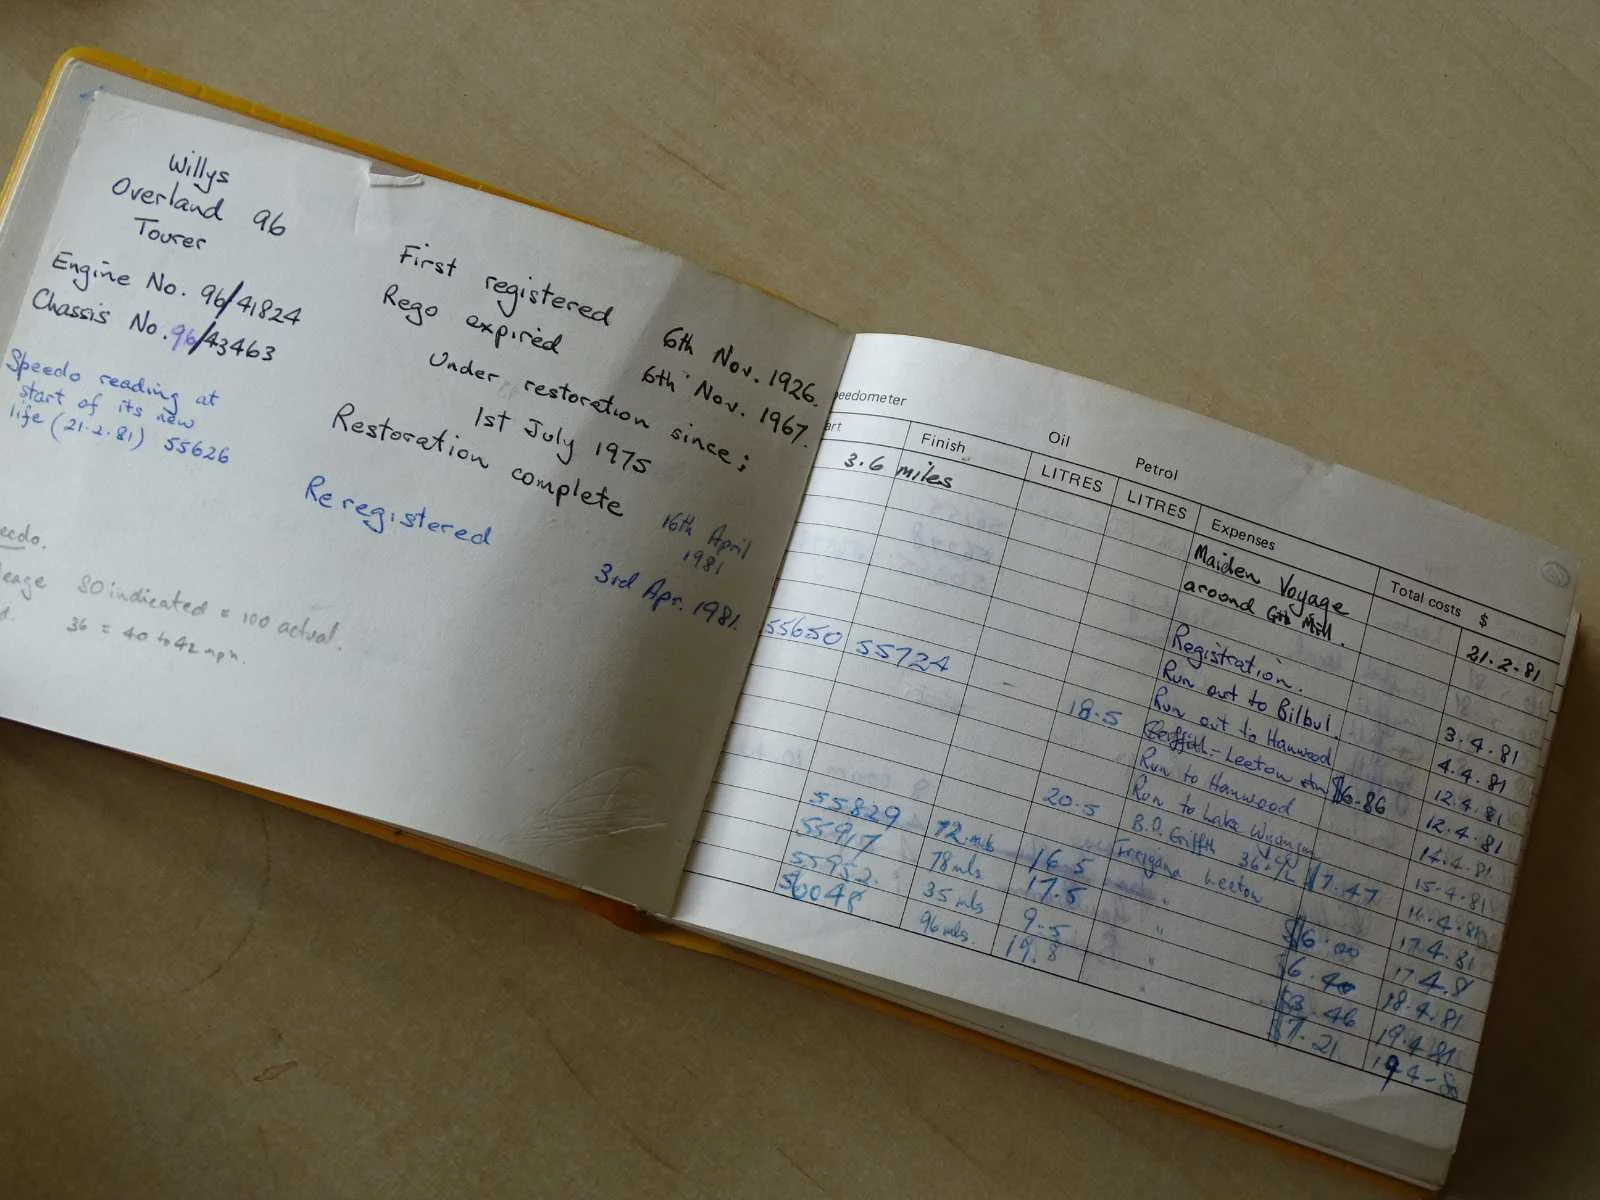 Willys
Overland 96
Tourer
Engine No. 96/41824
Chassis No. 96/43463
Speedo reading at
start of its new
life (21.2.81) 55626
eedo.
eage 80 indicated = 100 actual.
d. 36 = 40 to 42 mph.
First registered 6th Nov. 1926.
Rego expired 6th Nov. 1967.
Under restoration since;
1st July 1975
Restoration complete 16th April
1981
Re registered 3rd Apr. 1981.
eedometer Oil Petrol
art Finish LITRES LITRES Expenses Total costs $
3.6 miles Maiden Voyage
around Mill. 21.2.81
Registration. 3.4.81
55650 55724 Run out to Bilbul. 4.4.81
Run out to Hanwood 12.4.81
18.5 Leeton $6.86 12.4.81
Run to Hanwood 14.4.81
Run to Lake Wyangan 15.4.81
20.5 B.P. Griffith $7.47 16.4.81
55829 72 mls 16.5 Leeton $6.00 17.4.81
55917 78 mls 17.5 " $6.40 17.4.81
55952. 35 mls 9.5 " $3.46 18.4.81
56048 96 mls. 19.8 " $7.21 19.4.81
19-4-